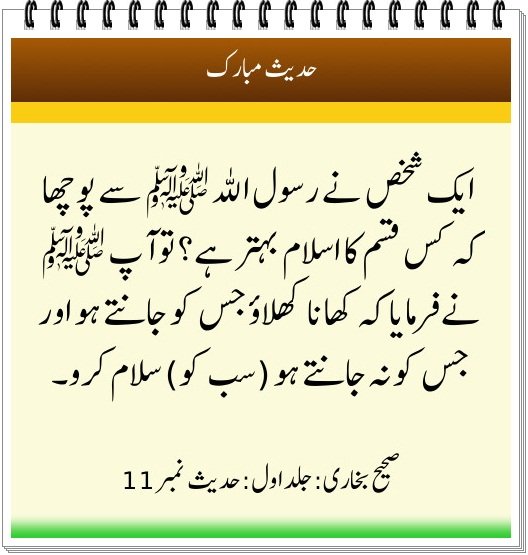 حدیث مبارک
ایک شخص نے رسول اللہ ﷺ سے پوچھا
کہ کس قسم کا اسلام بہتر ہے؟ تو آپ ﷺ
نے فرمایا کہ کھانا کھلاؤ جس کو جانتے ہو اور
جس کو نہ جانتے ہو (سب کو) سلام کرو۔
صحیح بخاری: جلد اول: حدیث نمبر 11